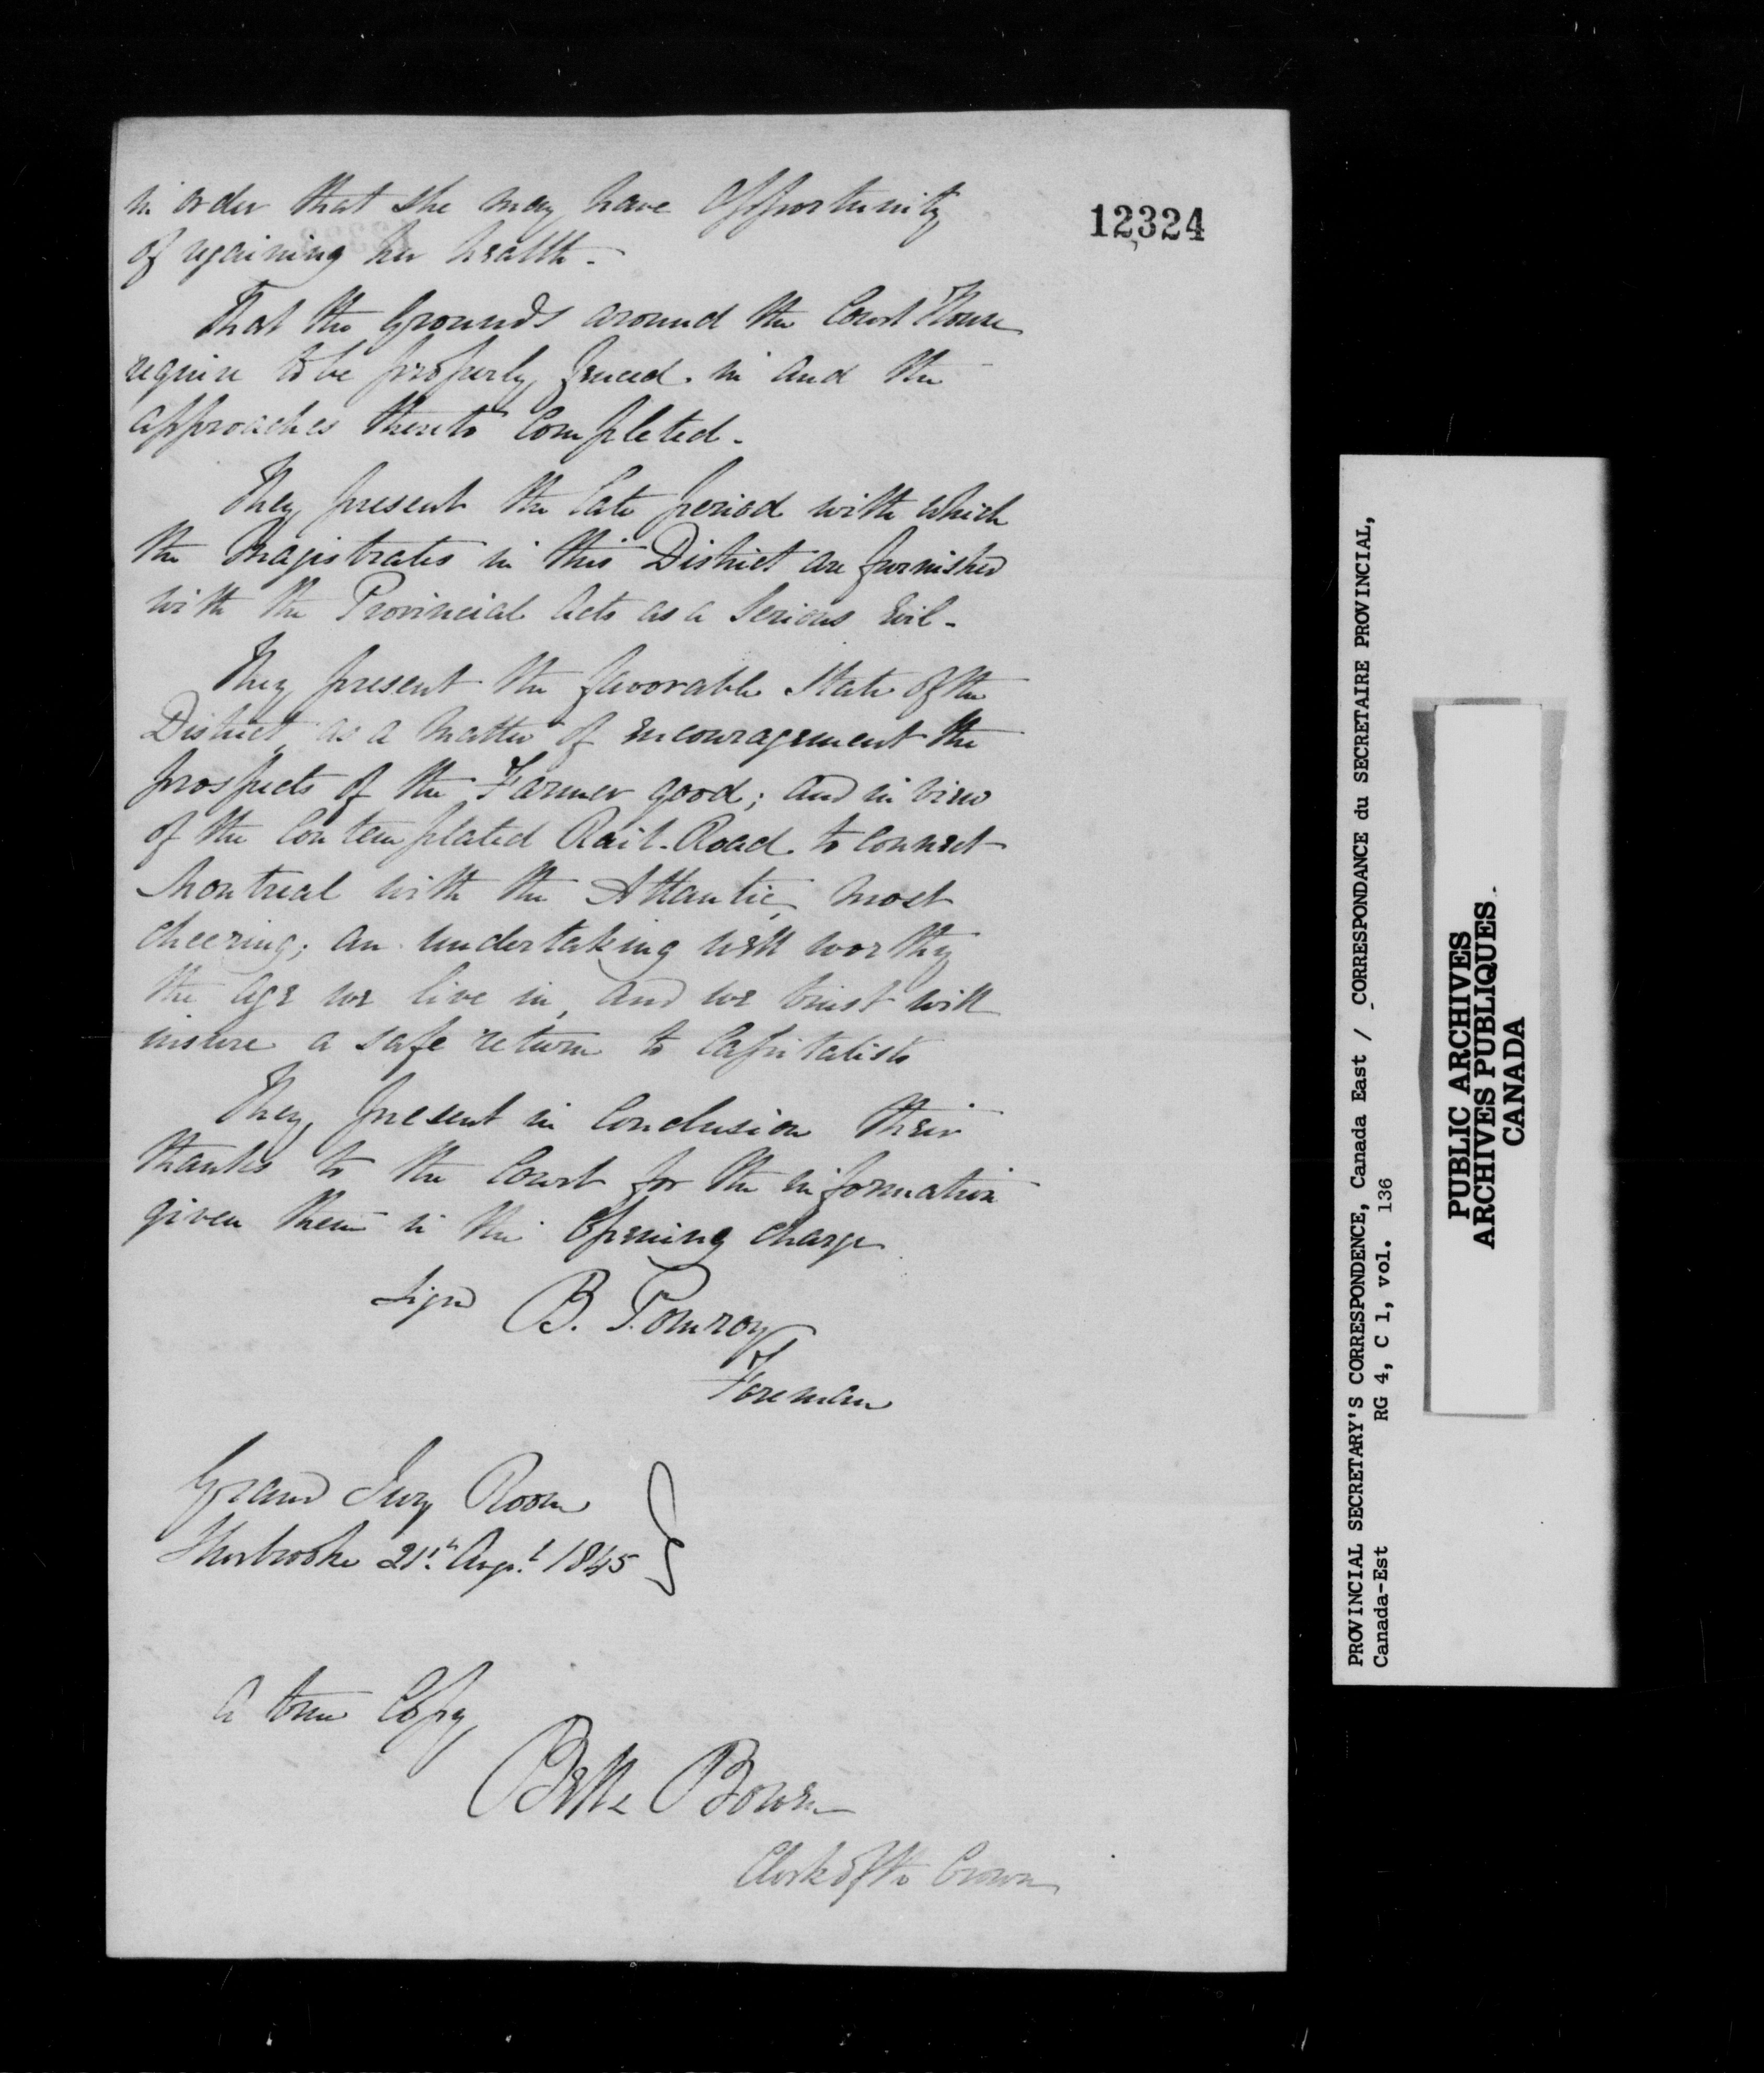 in order that she may have Opportunity
of regaining her health -
12324
That the Grounds around the Court House
require to be properly fenced in and the
approaches thereto Completed -
They present the late period with which
the Magistrates in this District are furnished
with the Provincial Acts as a Serious Evil -
They present the favorable State of the
District as a matter of encouragement the
prospects of the Farmer good; and in view
of the Contemplated Rail-Road to Connect
Montreal with the Atlantic, most
cheering; an undertaking well worthy
the age we live in, and we trust will
insure a safe return to Capitalists
They present in Conclusion their
thanks to the Court for the information
given them in the Opening Charge
Sign'd B. Pomroy
Foreman
Grand Jury Room
Sherbrooke 21st Augt 1845
A true Copy
Bowen
Clerk of the Crown
PROVINCIAL SECRETARY'S CORRESPONDENCE, Canada East / CORRESPONDANCE du SECRETAIRE PROVINCIAL,
Canada-Est RG 4, C 1, vol. 136
PUBLIC ARCHIVES
ARCHIVES PUBLIQUES
CANADA